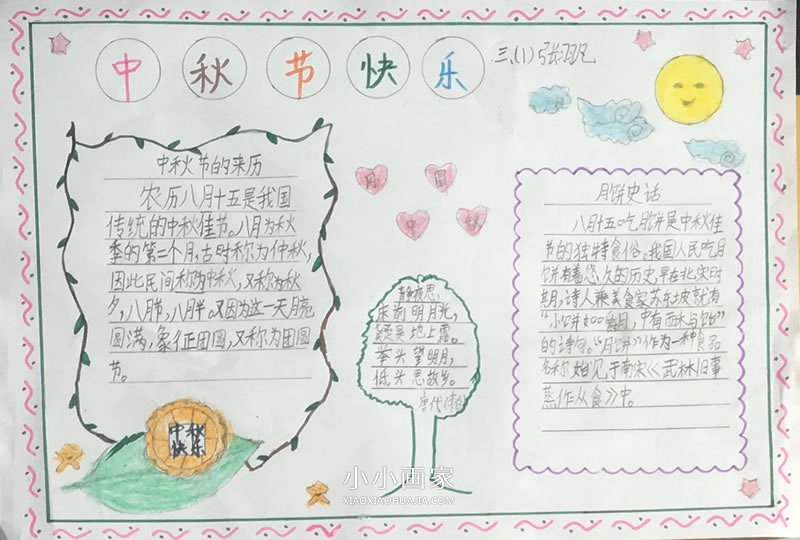 中秋节快乐
三、(1)张羽凡
中秋节的来历
农历八月十五是我国
传统的中秋佳节。八月为秋
季的第二个月,古时称为仲秋,
因此民间称为中秋,又称为秋
夕,八月节,八月半。又因为这一天月亮
圆满,象征团圆,又称为团圆
节。
中秋
快乐
月 圆
中 秋
静夜思
床前明月光,
疑是地上霜。
举头望明月,
低头思故乡。
唐代
月饼史话
八月十五吃月饼是中秋佳
节的独特食俗,我国人民吃月
饼有着悠久的历史,早在北宋时
期,诗人兼美食家苏东坡就有
“小饼如嚼月,中有酥与饴”
的诗句。“月饼”作为一种食品
名称始见于南宋《武林旧事
蒸作从食》中。
小小画家
XIAOXIAOHUAJIA.COM